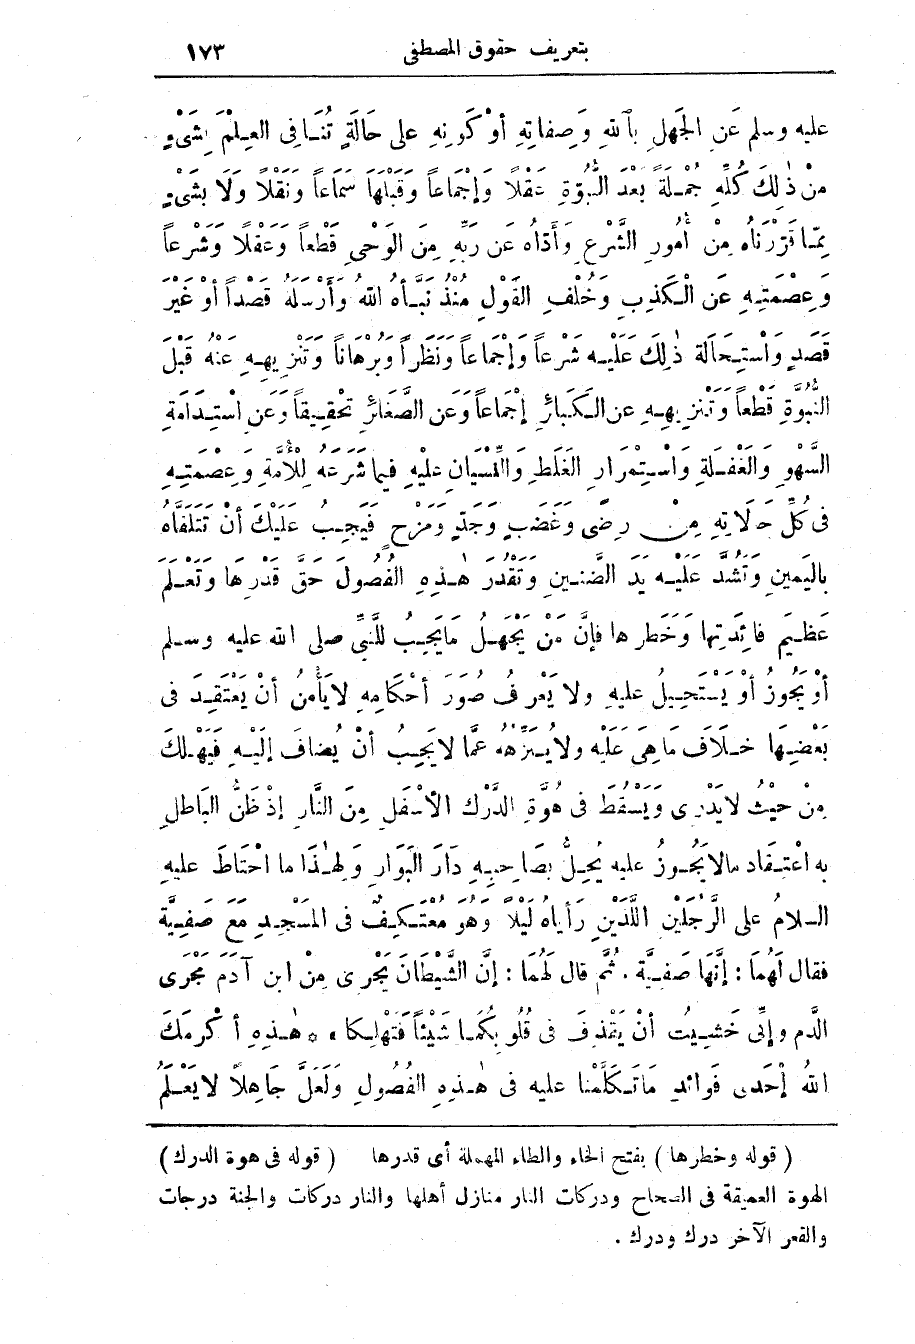 بتعريف حقوق المصطفى ١٧٣
عليه وسلم عَنِ الجَهْلِ بِاَللهِ وَصِفَاتِهِ أوْ كَوْنِهِ على حَالَةٍ تُنَافِى العِلْمَ بِشَىْءٍ
مِنْ ذٰلِكَ كُلِّهِ جُمْلَةً بَعْدَ النُّبُوَّةِ عَقْلاً وَإِجْمَاعاً وَقَبْلَهَا سَمَاعاً وَنَقْلاً وَلَا بِشَىْءٍ
مِمَّا قَرَّرْنَاهُ مِنْ أُمُورِ الشَّرْعِ وَأَدَّاهُ عَن رَبِّهِ مِنَ الوَحْىِ قَطْعاً وَعَقْلاً وَشَرْعاً
وَعِصْمَتِهِ عَنِ الْكَذِبِ وَخُلْفِ القَوْلِ مُنْذُ نَبَّأَهُ اللهُ وَأَرْسَلَهُ قَصْداً أَوْ غَيْرَ
قَصَدٍ وَاسْتِحَالَةِ ذٰلِكَ عَلَيْهِ شَرْعاً وَإِجْمَاعاً وَنَظَراً وَبُرْهَاناً وَتَنْزِيهِهِ عَنْهُ قَبْلَ
النُّبُوَّةِ قَطْعاً وَتَنْزِيهِهِ عَنِ الْكَبَائِرِ إِجْمَاعاً وَعَنِ الصَّغَائِرِ تَحْقِيقاً وَعَنِ اسْتِدَامَةِ
السَّهْوِ وَالغَفْلَةِ وَاسْتِمْرَارِ الغَلَطِ وَالنِّسْيَانِ عَلَيْهِ فِيمَا شَرَعَهُ لِلْأُمَّةِ وَعِصْمَتِهِ
فى كُلِّ حَالَاتِهِ مِنْ رِضًى وَغَضَبٍ وَجَدٍّ وَمَزْحٍ فَيَجِبُ عَلَيْكَ أنْ تَتَلَقَّاهُ
بِاليَمِينِ وَتَشُدَّ عَلَيْهِ يَدَ الضَّنِينِ وَتَقْدُرَ هٰذِهِ الفُصُولَ حَقَّ قَدْرِهَا وَتَعْلَمَ
عَظِيمَ فَائِدَتِهَا وَخَطَرِهَا فإنَّ مَنْ يَجْهَلُ مَايَجِبُ للنَّبِيِّ صلى الله عليه وسلم
أوْ يَجُوزُ أوْ يَسْتَحِيلُ عليهِ ولا يَعْرِفُ صُوَرَ أحْكَامِهِ لايَأْمَنُ أنْ يَعْتَقِدَ فى
بَعْضِهَا خِلَافَ مَاهِىَ عَلَيْهِ ولايُنَزِّهُهُ عمَّا لايَجِبُ أنْ يُضَافَ إِلَيْهِ فَيَهْلِكَ
مِنْ حَيْثُ لايَدْرِى وَيَسْقُطَ فى هُوَّةِ الدَّرْكِ الأَسْفَلِ مِنَ النَّارِ إذْ ظَنُّ البَاطِلِ
به اعْتِقَادُ مالايَجُوزُ عليهِ يُحِلُّ بِصَاحِبِهِ دَارَ البَوَارِ وَلِهٰذَا ما احْتَاطَ عليهِ
السلامُ على الرَّجُلَيْنِ اللَّذَيْنِ رَأَيَاهُ لَيْلاً وَهُوَ مُعْتَكِفٌ فى المَسْجِدِ مَعَ صَفِيَّةَ
فقال لَهُمَا : إنَّهَا صَفِيَّةُ . ثُمَّ قال لَهُمَا : إنَّ الشَّيْطَانَ يَجْرِى مِنْ ابنِ آدَمَ مَجْرَى
الدَّمِ وإنِّى خَشِيتُ أنْ يَقْذِفَ فى قُلُوبِكُمَا شَيْئاً فَتَهْلِكا ، * هٰذِهِ أكْرَمَكَ
اللهُ إحْدَى فَوَائِدِ مَاتَكَلَّمْنَا عليهِ فى هٰذِهِ الفُصُولِ وَلَعَلَّ جَاهِلاً لايَعْلَمُ
( قوله وخطرها ) بفتح الخاء والطاء المهملة أى قدرها ( قوله فى هوة الدرك )
الهوة العميقة فى الصحاح ودركات النار منازل أهلها والنار دركات والجنة درجات
والقعر الآخر درك ودرك .